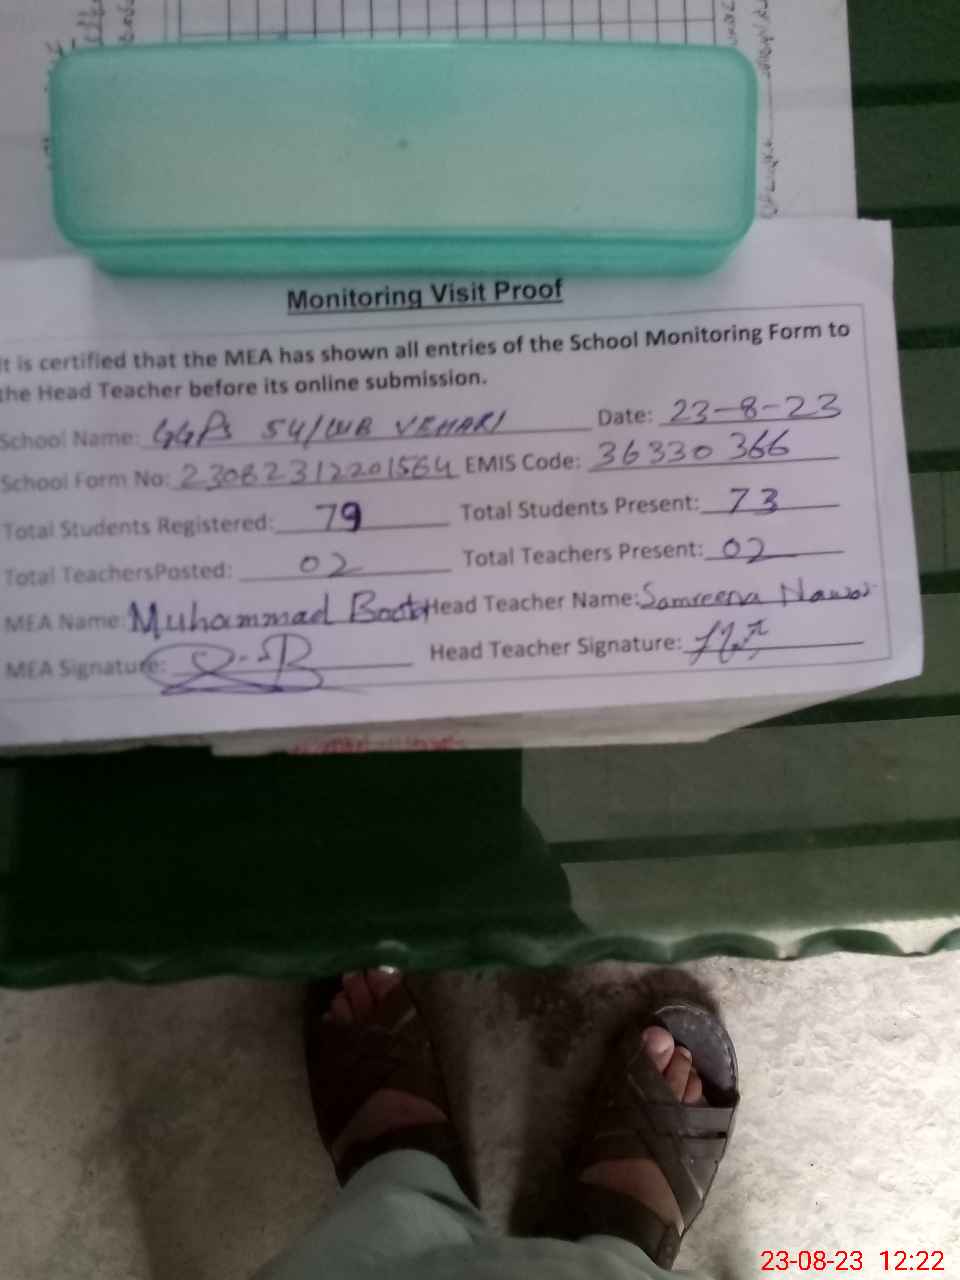 Monitoring Visit Proof
It is certified that the MEA has shown all entries of the School Monitoring Form to
the Head Teacher before its online submission.
School Name: GGPS 54/WB VEHARI Date: 23-8-23
School Form No: 230823122201564 EMIS Code: 36330 366
Total Students Registered: 79 Total Students Present: 73
Total TeachersPosted: 02 Total Teachers Present: 02
MEA Name: Muhammad Head Teacher Name: Samreena Nawaz
MEA Signature: Head Teacher Signature:
23-08-23 12:22